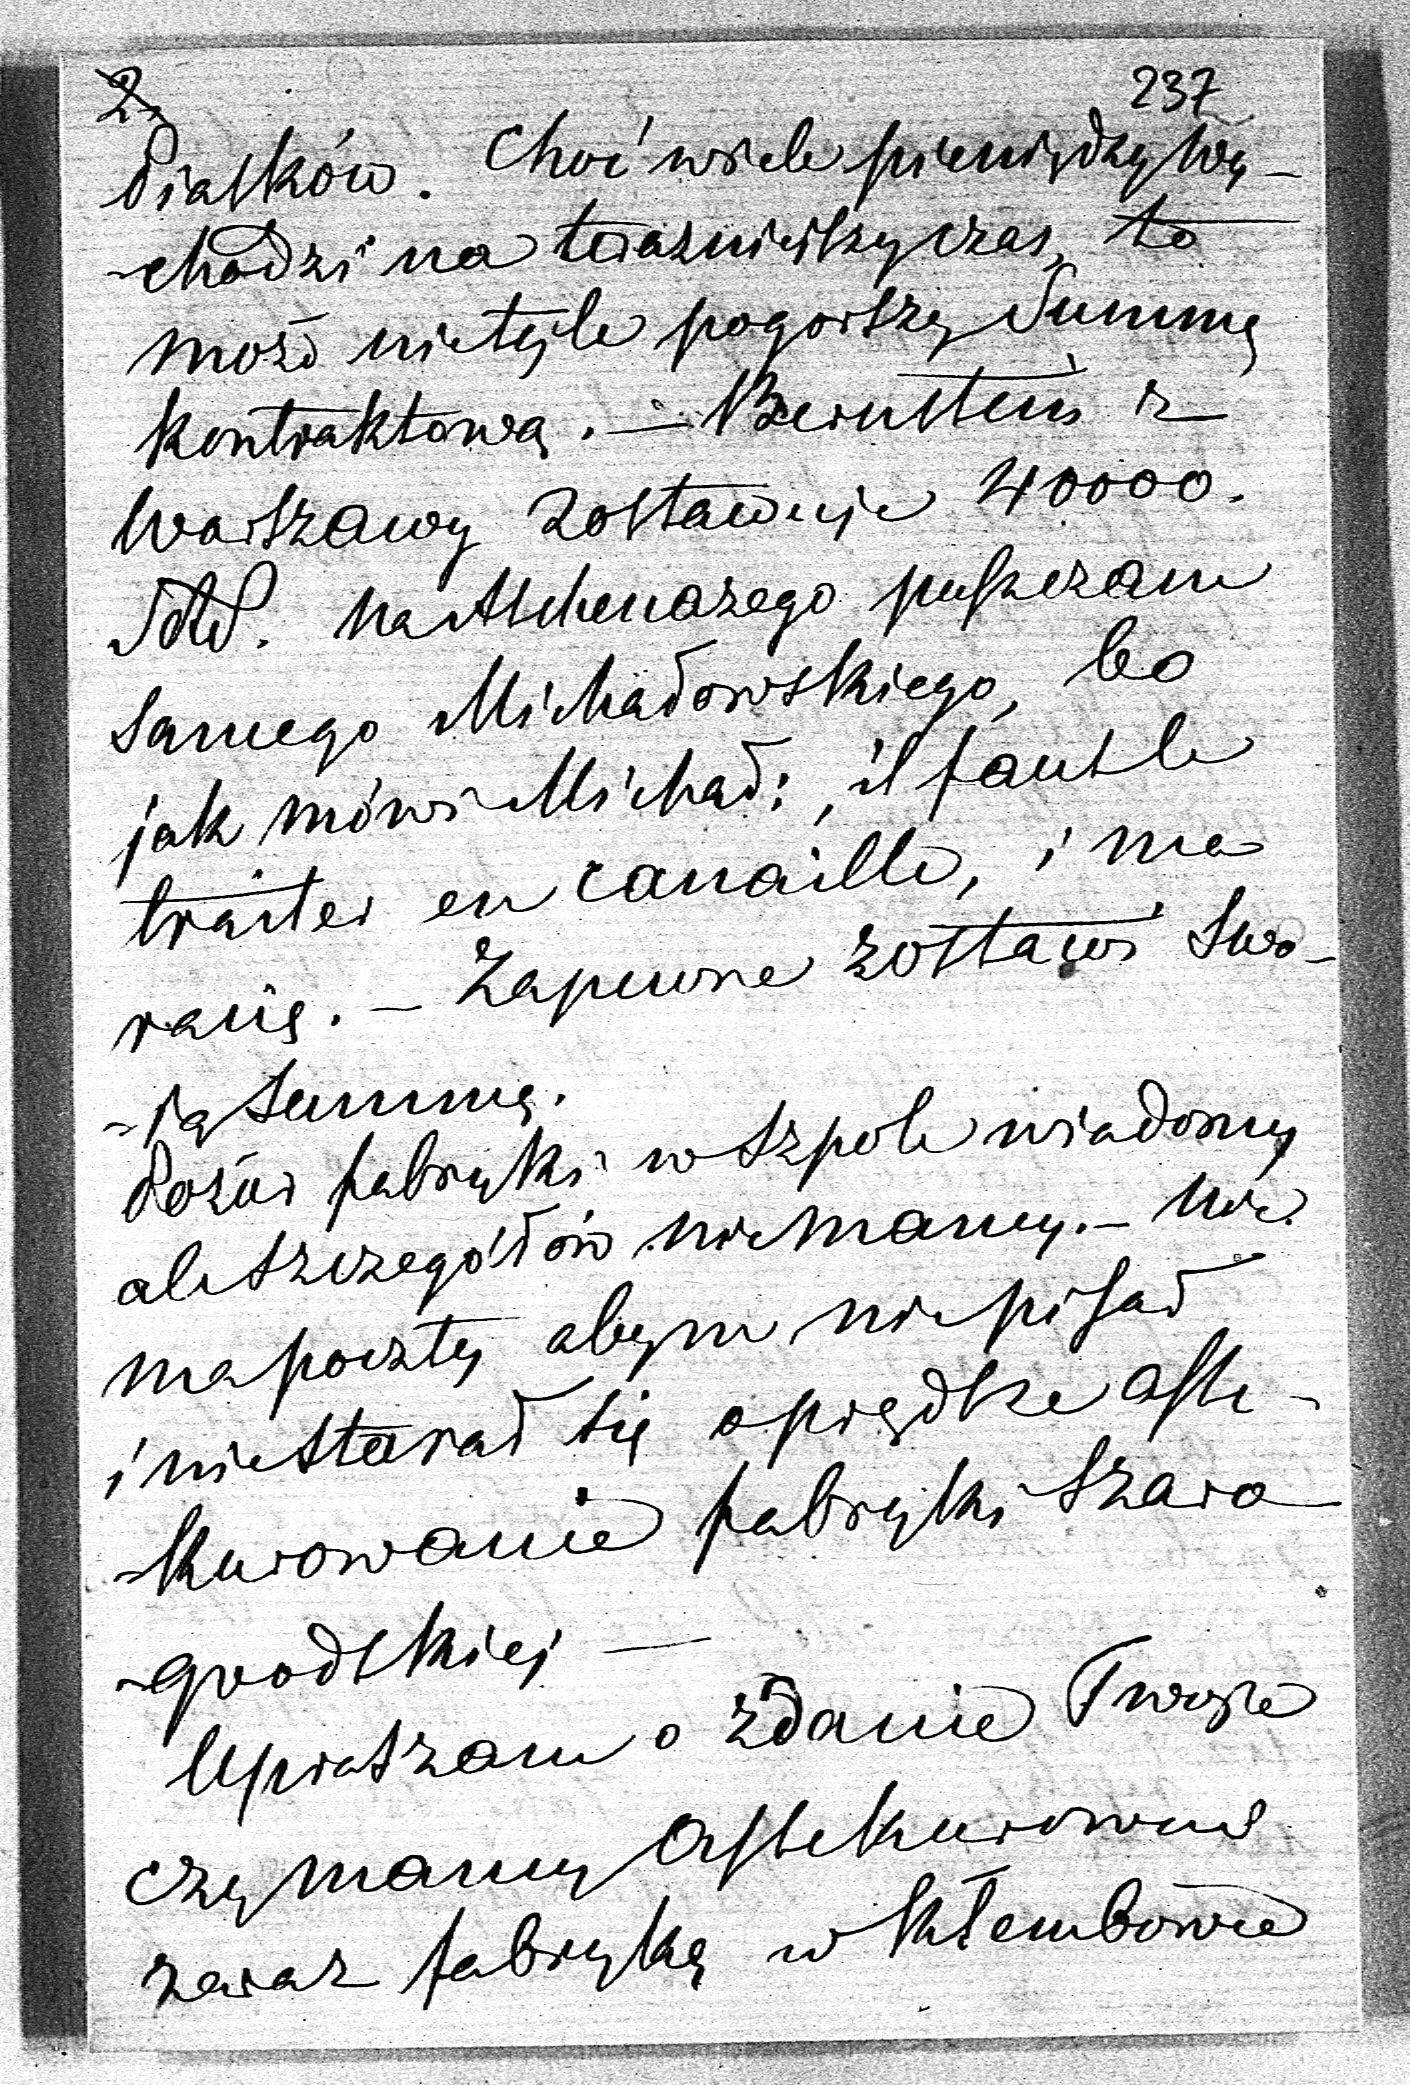 2. 237
działków. Choć wiele pieniędzy wy-
-chodzi na teraznieiszy czas, to
może nietyle pogorszy Summę
kontraktową. — Bernstein z
Warszawy zostawuje 40000.
Na Aschenazego puszczam
samego Michałowskiego, bo
jak mówi Michał: il faut le
traiter en canaille, i ma
racię. — Zapewne zostawi swo-
-ią Summę.
Pożar fabryki w Szpole wiadomy
ale szczegółów nie mamy. — Nie
ma poczty abym nie pisał
i nie starał się o prędsze asse-
-kurowanie fabryki Szaro-
-grodskiej —
Upraszam o zdanie Twoje
czy mamy assekurować
zaraz fabrykę w Kłembowie